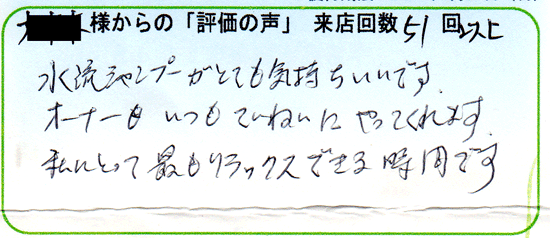 様からの「評価の声」 来店回数 51 回以上
水流シャンプーがとても気持ちいいです.
オーナーも いつも ていねいに やってくれます.
私にとって 最もリラックスできる 時間です